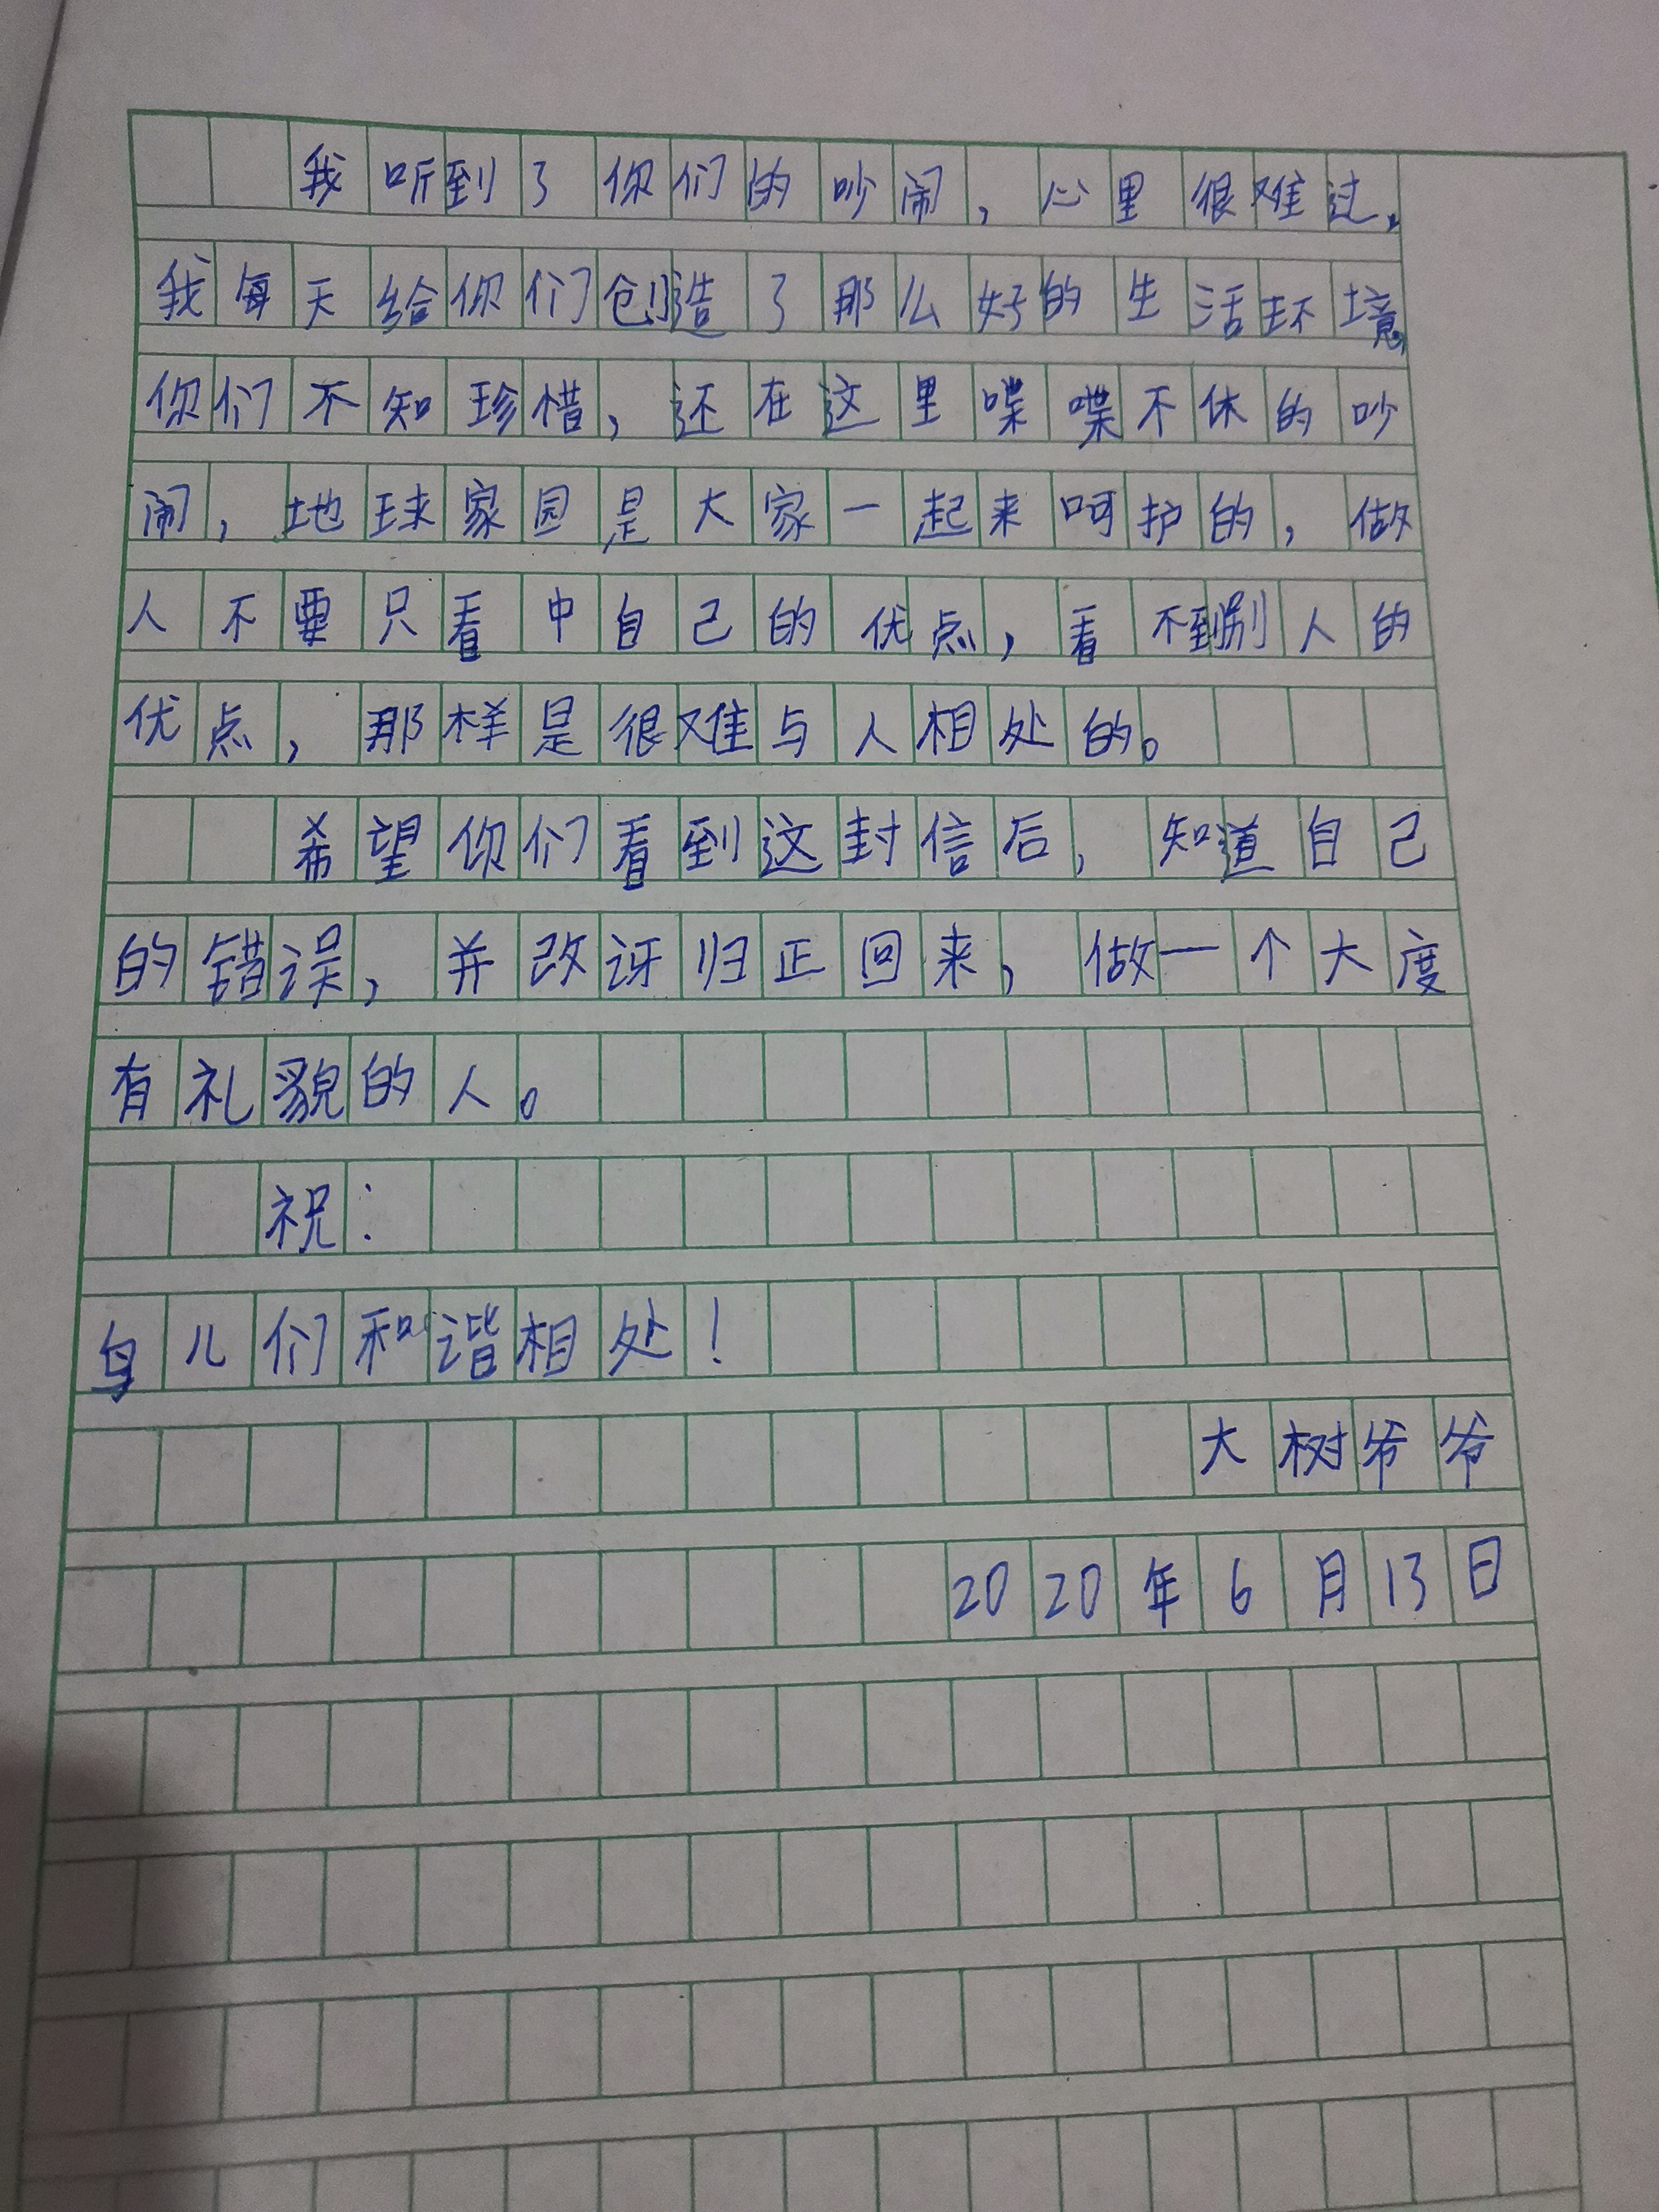 我听到了你们的吵闹，心里很难过，
我每天给你们创造了那么好的生活环境，
你们不知珍惜，还在这里喋喋不休的吵
闹，地球家园是大家一起来呵护的，做
人不要只看中自己的优点，看不到别人的
优点，那样是很难与人相处的。
希望你们看到这封信后，知道自己
的错误，并改讶归正回来，做一个大度
有礼貌的人。
祝：
鸟儿们和谐相处！
大树爷爷
2020年6月13日